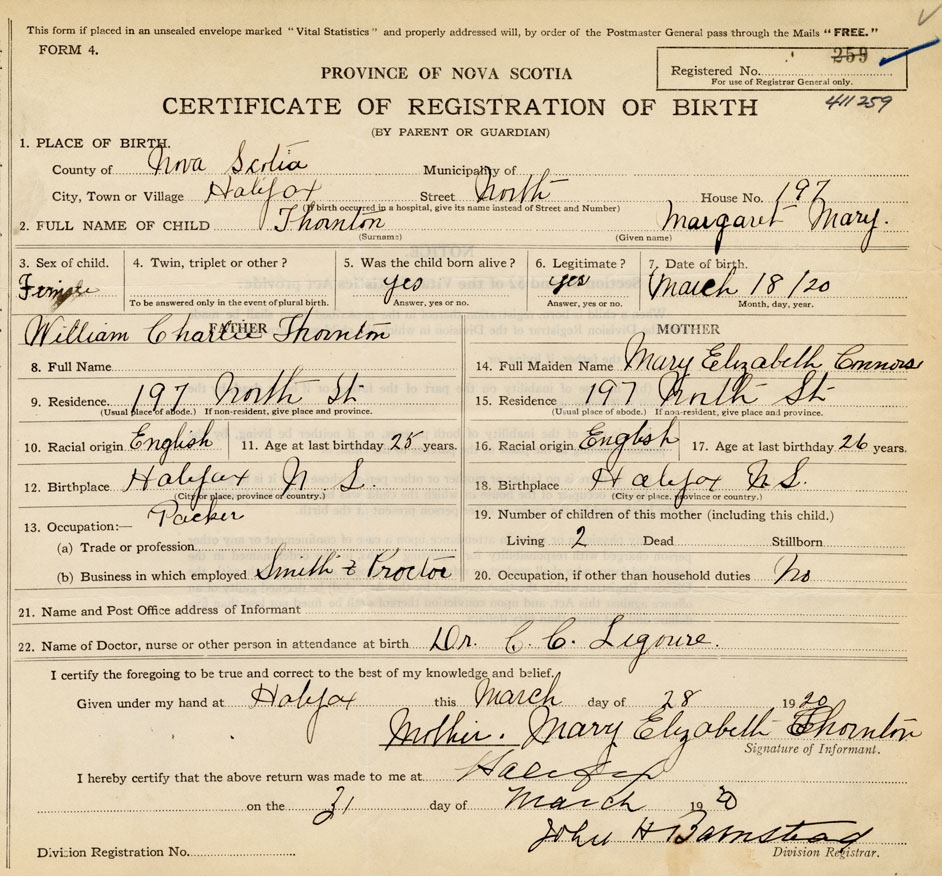 This form if placed in an unsealed envelope marked "Vital Statistics" and properly addressed will, by order of the Postmaster General pass through the Mails "FREE."
FORM 4.
259
Registered No.
For use of Registrar General only.
PROVINCE OF NOVA SCOTIA
CERTIFICATE OF REGISTRATION OF BIRTH
411259
(BY PARENT OR GUARDIAN)
1. PLACE OF BIRTH.
County of Nova Scotia Municipality of
City, Town or Village Halifax Street North House No. 197
(If birth occurred in a hospital, give its name instead of Street and Number)
2. FULL NAME OF CHILD Thornton Margaret Mary.
(Surname) (Given name)
3. Sex of child. 4. Twin, triplet or other? 5. Was the child born alive? 6. Legitimate? 7. Date of birth.
Female yes yes March 18/20
To be answered only in the event of plural birth. Answer, yes or no. Answer, yes or no. Month, day, year.
FATHER MOTHER
William Charlie Thornton
8. Full Name 14. Full Maiden Name Mary Elizabeth Connors
9. Residence. 197 North St 15. Residence 197 North St
(Usual place of abode.) If non-resident, give place and province. (Usual place of abode.) If non-resident, give place and province.
10. Racial origin English 11. Age at last birthday 25 years. 16. Racial origin English 17. Age at last birthday 26 years.
12. Birthplace Halifax N.S. 18. Birthplace Halifax N.S.
(City or place, province or country.) (City or place, province or country.)
13. Occupation:— Packer 19. Number of children of this mother (including this child.)
(a) Trade or profession Living 2 Dead Stillborn
(b) Business in which employed Smith & Proctor 20. Occupation, if other than household duties No
21. Name and Post Office address of Informant
22. Name of Doctor, nurse or other person in attendance at birth Dr. C. C. Ligoure.
I certify the foregoing to be true and correct to the best of my knowledge and belief.
Given under my hand at Halifax this March day of 28 1920
Mother. Mary Elizabeth Thornton
Signature of Informant.
I hereby certify that the above return was made to me at Halifax
on the 31 day of March 1920
John H Barnstead
Division Registration No. Division Registrar.